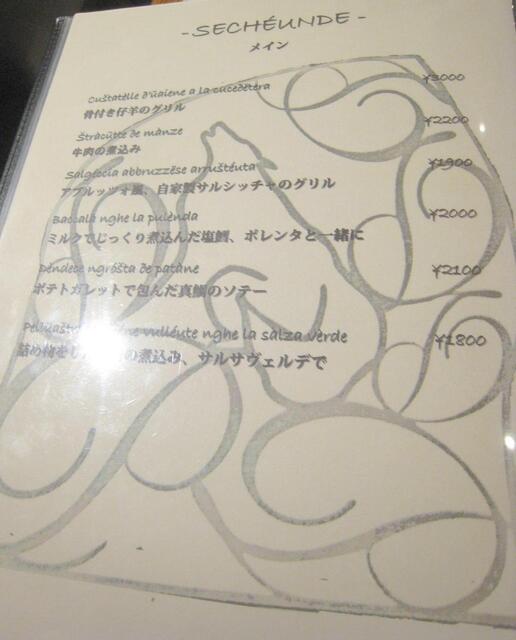 -SECHÉUNDE -
メイン
Cuštatélle d'uaiene a la cucedétera ¥3000
骨付き仔羊のグリル
Štracùtte de mànze ¥2200
牛肉の煮込み
Salgéccia abbruzzëse arruštéuta ¥1900
アブルッツォ風、自家製サルシッチャのグリル
Baccalà nghe la pulènda ¥2000
ミルクでじっくり煮込んだ塩鱈、ポレンタと一緒に
Dèndece ngròšta de patàne ¥2100
ポテトガレットで包んだ真鯛のソテー
vulléute nghe la salza vérde ¥1800
詰め物を の煮込み、サルサヴェルデで